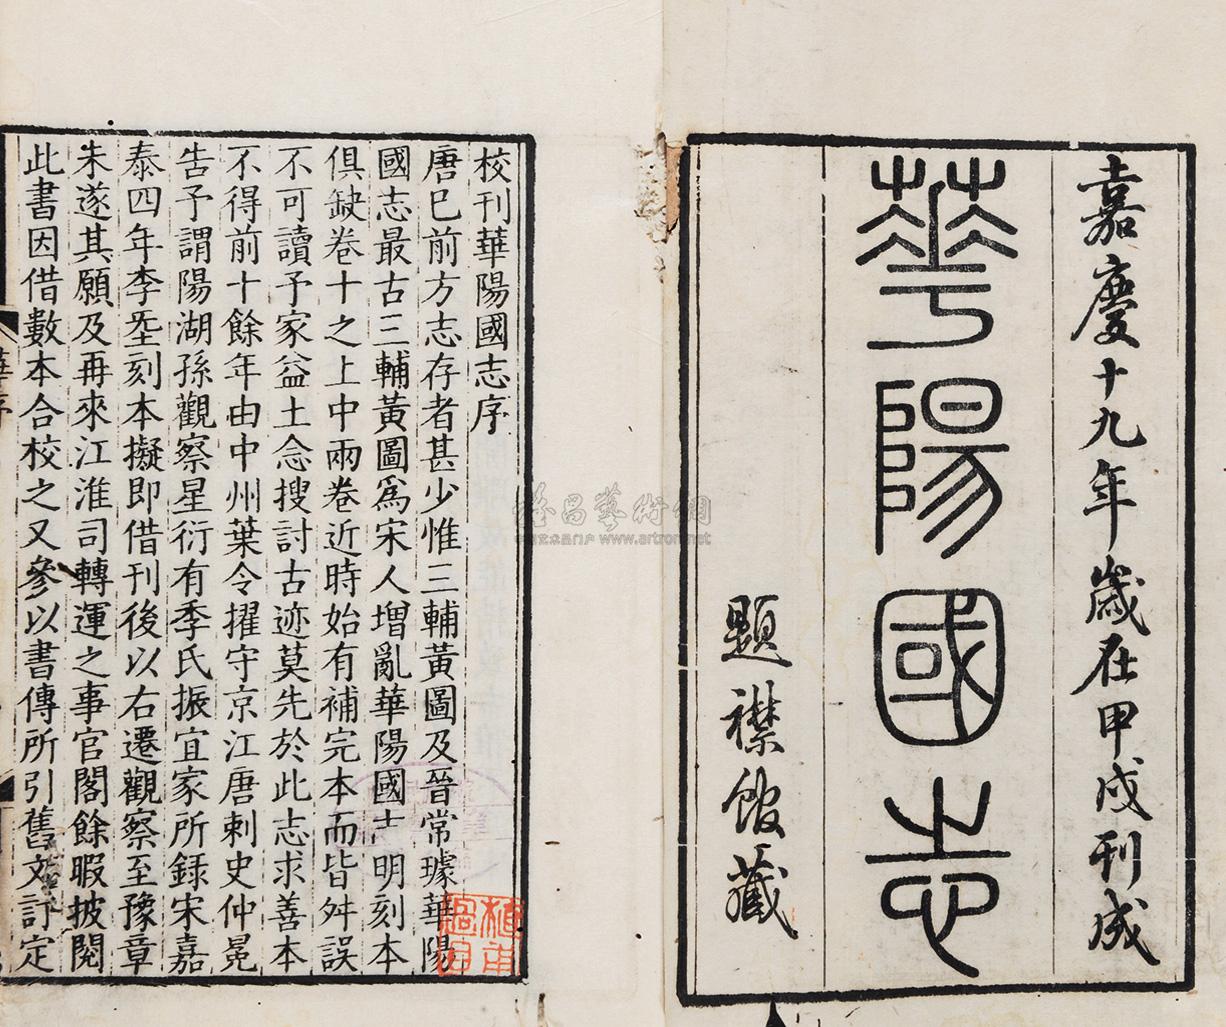 嘉慶十九年歲在甲戌刊成
華陽國志
題襟館藏
校刊華陽國志序
唐巳前方志存者甚少惟三輔黃圖及晉常璩華陽
國志最古三輔黃圖爲宋人增亂華陽國志明刻本
俱缺卷十之上中兩卷近時始有補完本而皆舛誤
不可讀予家益土念搜討古迹莫先於此志求善本
不得前十餘年由中州葉令擢守京江唐刺史仲冕
告予謂陽湖孫觀察星衍有季氏振宜家所録宋嘉
泰四年李𡊮刻本擬即借刊後以右遷觀察至豫章
未遂其願及再來江淮司轉運之事官閣餘暇披閱
此書因借數本合校之又參以書傳所引舊文訂定
華序
www.artron.net